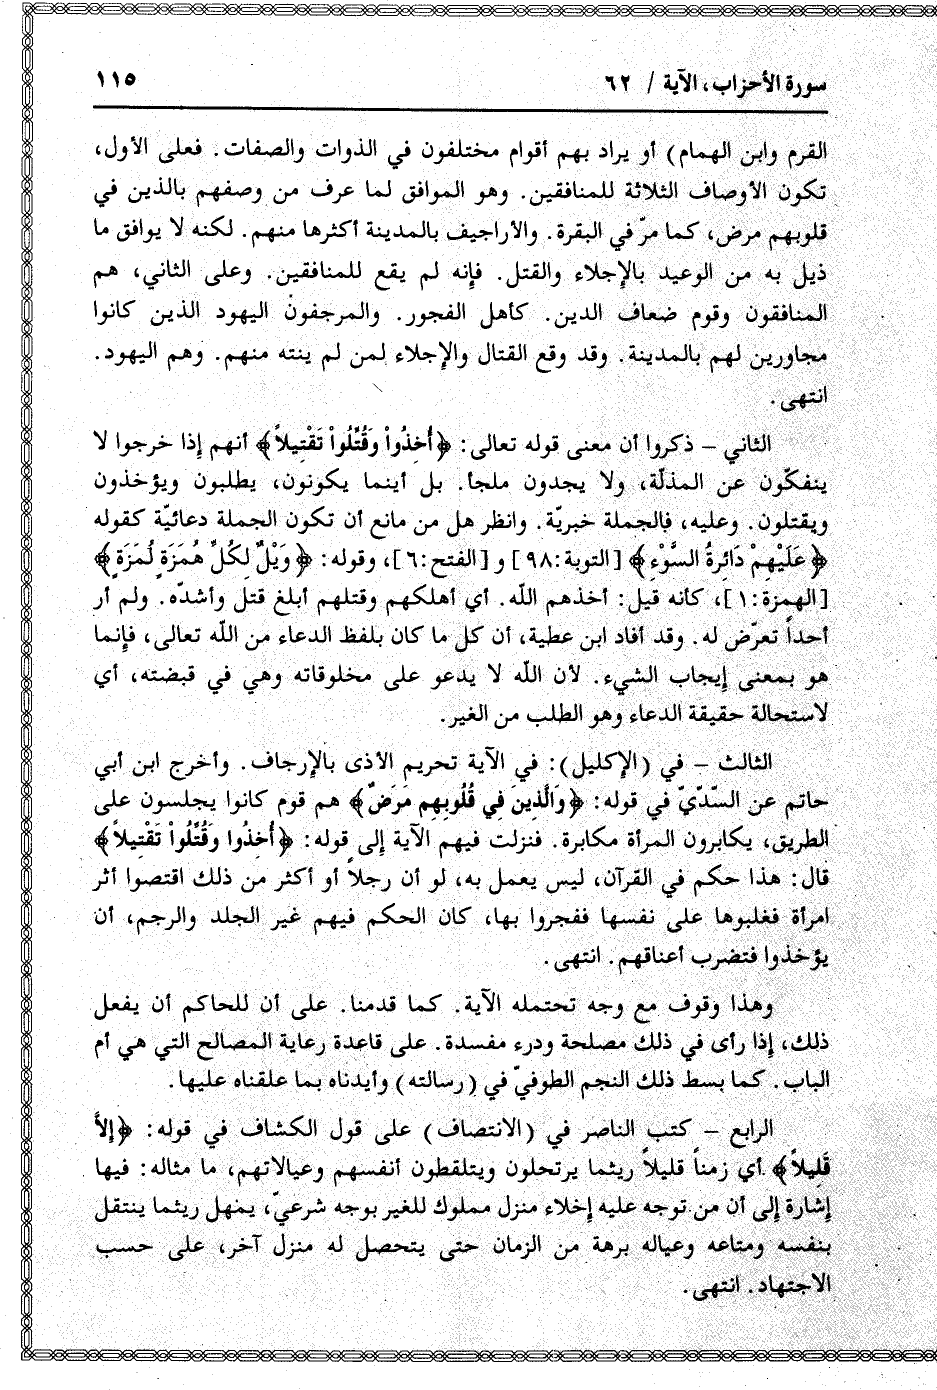 سورة الأحزاب، الآية / ٦٢ ١١٥
القرم وابن الهمام) أو يراد بهم أقوام مختلفون في الذوات والصفات. فعلى الأول،
تكون الأوصاف الثلاثة للمنافقين. وهو الموافق لما عرف من وصفهم بالذين في
قلوبهم مرض، كما مرّ في البقرة. والأراجيف بالمدينة أكثرها منهم. لكنه لا يوافق ما
ذيل به من الوعيد بالإجلاء والقتل. فإنه لم يقع للمنافقين. وعلى الثاني، هم
المنافقون وقوم ضعاف الدين. كأهل الفجور. والمرجفون اليهود الذين كانوا
مجاورين لهم بالمدينة. وقد وقع القتال والإجلاء لمن لم ينته منهم. وهم اليهود.
انتهى.
الثاني – ذكروا أن معنى قوله تعالى: ﴿أُخِذُواْ وَقُتِّلُواْ تَقْتِيلاً﴾ أنهم إذا خرجوا لا
ينفكّون عن المذلّة، ولا يجدون ملجأ. بل أينما يكونون، يطلبون ويؤخذون
ويقتلون. وعليه، فالجملة خبريّة. وانظر هل من مانع أن تكون الجملة دعائيّة كقوله
﴿عَلَيْهِمْ دَائِرةُ السَّوْءِ﴾ [التوبة:٩٨] و [الفتح:٦]، وقوله: ﴿وَيْلٌ لِكُلِّ هُمَزَةٍ لُمَزَةٍ﴾
[الهمزة:١]، كأنه قيل: أخذهم اللّه. أي أهلكهم وقتلهم أبلغ قتل وأشدّه. ولم أر
أحداً تعرّض له. وقد أفاد ابن عطية، أن كل ما كان بلفظ الدعاء من اللّه تعالى، فإنما
هو بمعنى إيجاب الشيء. لأن اللّه لا يدعو على مخلوقاته وهي في قبضته، أي
لاستحالة حقيقة الدعاء وهو الطلب من الغير.
الثالث – في (الإكليل): في الآية تحريم الأذى بالإرجاف. وأخرج ابن أبي
حاتم عن السّدّيّ في قوله: ﴿وَالَّذِينَ فِي قُلُوبِهِم مَرَضٌ﴾ هم قوم كانوا يجلسون على
الطريق، يكابرون المرأة مكابرة. فنزلت فيهم الآية إلى قوله: ﴿أُخذُوا وَقُتَّلُواْ تَقْتِيلاً﴾
قال: هذا حكم في القرآن، ليس يعمل به، لو أن رجلاً أو أكثر من ذلك اقتصوا أثر
امرأة فغلبوها على نفسها ففجروا بها، كان الحكم فيهم غير الجلد والرجم، أن
يؤخذوا فتضرب أعناقهم. انتهى.
وهذا وقوف مع وجه تحتمله الآية. كما قدمنا. على أن للحاكم أن يفعل
ذلك، إذا رأى في ذلك مصلحة ودرء مفسدة. على قاعدة رعاية المصالح التي هي أم
الباب. كما بسط ذلك النجم الطوفيّ في (رسالته) وأيدناه بما علقناه عليها.
الرابع – كتب الناصر في (الانتصاف) على قول الكشاف في قوله: ﴿إلاَّ
قَلِيلاً﴾ أي زمناً قليلاً ريثما يرتحلون ويتلقطون أنفسهم وعيالاتهم، ما مثاله: فيها
إشارة إلى أن من توجه عليه إخلاء منزل مملوك للغير بوجه شرعيّ، يمهل ريثما ينتقل
بنفسه ومتاعه وعياله برهة من الزمان حتى يتحصل له منزل آخر، على حسب
الاجتهاد. انتهى.